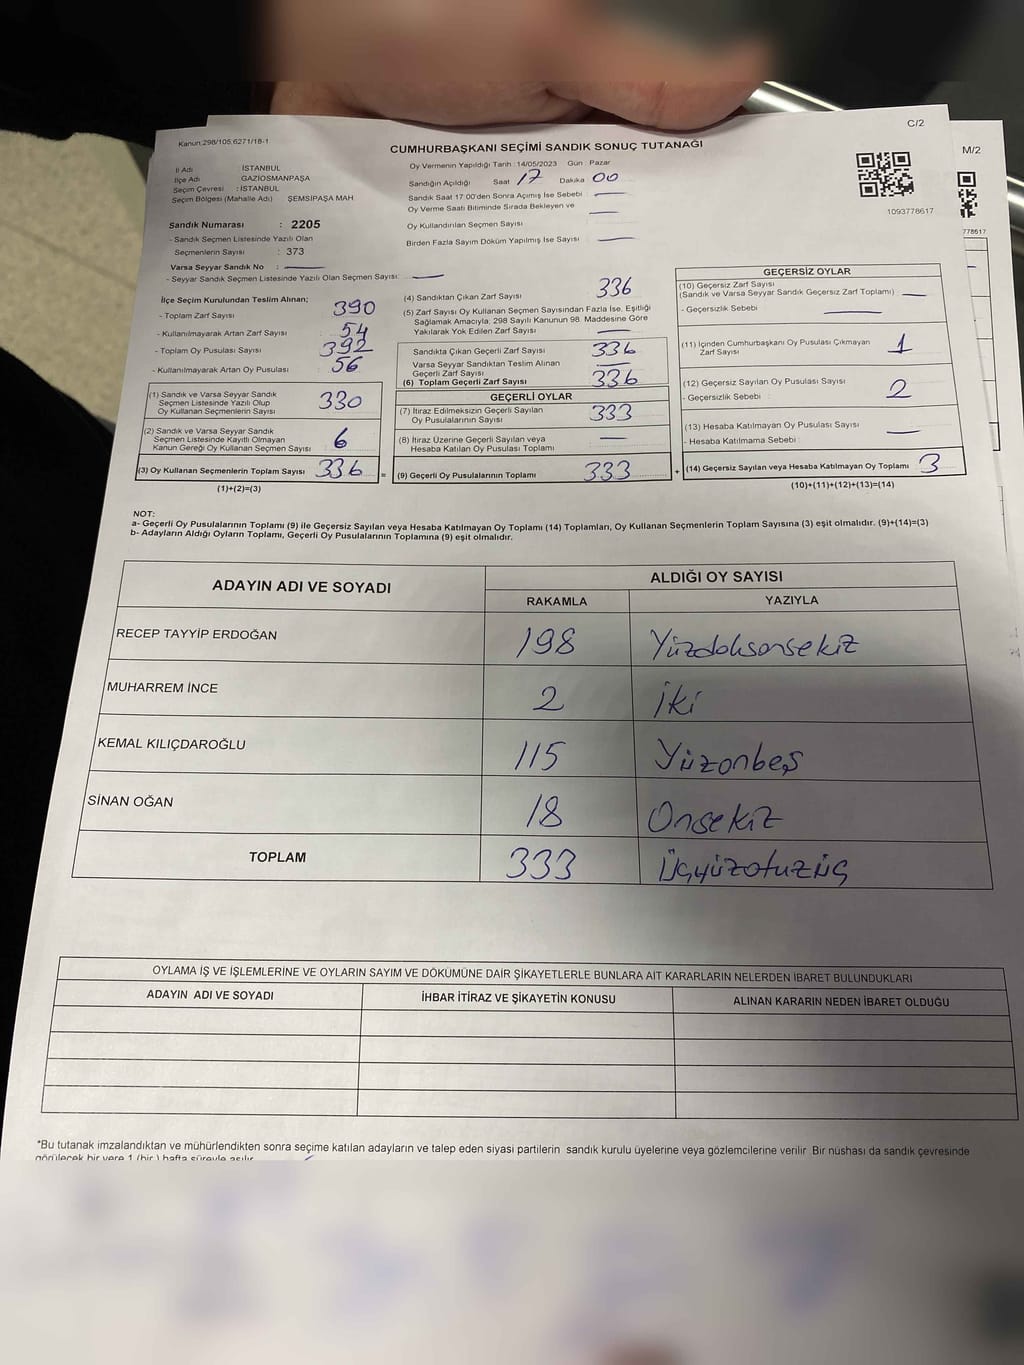 C/2
Kanun:298/105,6271/18-1
CUMHURBAŞKANI SEÇİMİ SANDIK SONUÇ TUTANAĞI
M/2
İl Adı İSTANBUL
İlçe Adı GAZİOSMANPAŞA
Seçim Çevresi : İSTANBUL
Seçim Bölgesi (Mahalle Adı) ŞEMSİPAŞA MAH
Oy Vermenin Yapıldığı Tarih : 14/05/2023 Gün : Pazar
Sandığın Açıldığı Saat 17 Dakika 00
Sandık Saat 17:00'den Sonra Açımış İse Sebebi
Oy Verme Saati Bitiminde Sırada Bekleyen ve
Oy Kullandırılan Seçmen Sayısı
Birden Fazla Sayım Döküm Yapılmış İse Sayısı
1093778617
778617
Sandık Numarası : 2205
- Sandık Seçmen Listesinde Yazılı Olan
Seçmenlerin Sayısı : 373
Varsa Seyyar Sandık No :
- Seyyar Sandık Seçmen Listesinde Yazılı Olan Seçmen Sayısı:
İlçe Seçim Kurulundan Teslim Alınan;
- Toplam Zarf Sayısı 390
- Kullanılmayarak Artan Zarf Sayısı 54
- Toplam Oy Pusulası Sayısı 392
- Kullanılmayarak Artan Oy Pusulası 56
(1) Sandık ve Varsa Seyyar Sandık
Seçmen Listesinde Yazılı Olup
Oy Kullanan Seçmenlerin Sayısı 330
(2) Sandık ve Varsa Seyyar Sandık
Seçmen Listesinde Kayıtlı Olmayan
Kanun Gereği Oy Kullanan Seçmen Sayısı 6
(3) Oy Kullanan Seçmenlerin Toplam Sayısı 336 =
(1)+(2)=(3)
(4) Sandıktan Çıkan Zarf Sayısı 336
(5) Zarf Sayısı Oy Kullanan Seçmen Sayısından Fazla İse, Eşitliği
Sağlamak Amacıyla, 298 Sayılı Kanunun 98. Maddesine Göre
Yakılarak Yok Edilen Zarf Sayısı
Sandıkta Çıkan Geçerli Zarf Sayısı 336
Varsa Seyyar Sandıktan Teslim Alınan
Geçerli Zarf Sayısı
(6) Toplam Geçerli Zarf Sayısı 336
GEÇERLİ OYLAR
(7) İtiraz Edilmeksizin Geçerli Sayılan
Oy Pusulalarının Sayısı 333
(8) İtiraz Üzerine Geçerli Sayılan veya
Hesaba Katılan Oy Pusulası Toplamı
(9) Geçerli Oy Pusulalarının Toplamı 333 +
GEÇERSİZ OYLAR
(10) Geçersiz Zarf Sayısı
(Sandık ve Varsa Seyyar Sandık Geçersiz Zarf Toplamı)
- Geçersizlik Sebebi
(11) İçinden Cumhurbaşkanı Oy Pusulası Çıkmayan
Zarf Sayısı 1
(12) Geçersiz Sayılan Oy Pusulası Sayısı 2
- Geçersizlik Sebebi :
(13) Hesaba Katılmayan Oy Pusulası Sayısı
- Hesaba Katılmama Sebebi :
(14) Geçersiz Sayılan veya Hesaba Katılmayan Oy Toplamı 3
(10)+(11)+(12)+(13)=(14)
NOT:
a- Geçerli Oy Pusulalarının Toplamı (9) ile Geçersiz Sayılan veya Hesaba Katılmayan Oy Toplamı (14) Toplamları, Oy Kullanan Seçmenlerin Toplam Sayısına (3) eşit olmalıdır. (9)+(14)=(3)
b- Adayların Aldığı Oyların Toplamı, Geçerli Oy Pusulalarının Toplamına (9) eşit olmalıdır.
ADAYIN ADI VE SOYADI ALDIĞI OY SAYISI
RAKAMLA YAZIYLA
RECEP TAYYİP ERDOĞAN 198 Yüzdoksansekiz
MUHARREM İNCE 2 İki
KEMAL KILIÇDAROĞLU 115 Yüzonbeş
SİNAN OĞAN 18 Onsekiz
TOPLAM 333 Üçyüzotuzüç
OYLAMA İŞ VE İŞLEMLERİNE VE OYLARIN SAYIM VE DÖKÜMÜNE DAİR ŞİKAYETLERLE BUNLARA AİT KARARLARIN NELERDEN İBARET BULUNDUKLARI
ADAYIN ADI VE SOYADI İHBAR İTİRAZ VE ŞİKAYETİN KONUSU ALINAN KARARIN NEDEN İBARET OLDUĞU
*Bu tutanak imzalandıktan ve mühürlendikten sonra seçime katılan adayların ve talep eden siyasi partilerin sandık kurulu üyelerine veya gözlemcilerine verilir Bir nüshası da sandık çevresinde
görülecek bir yere 1 (bir ) hafta süreyle asılır